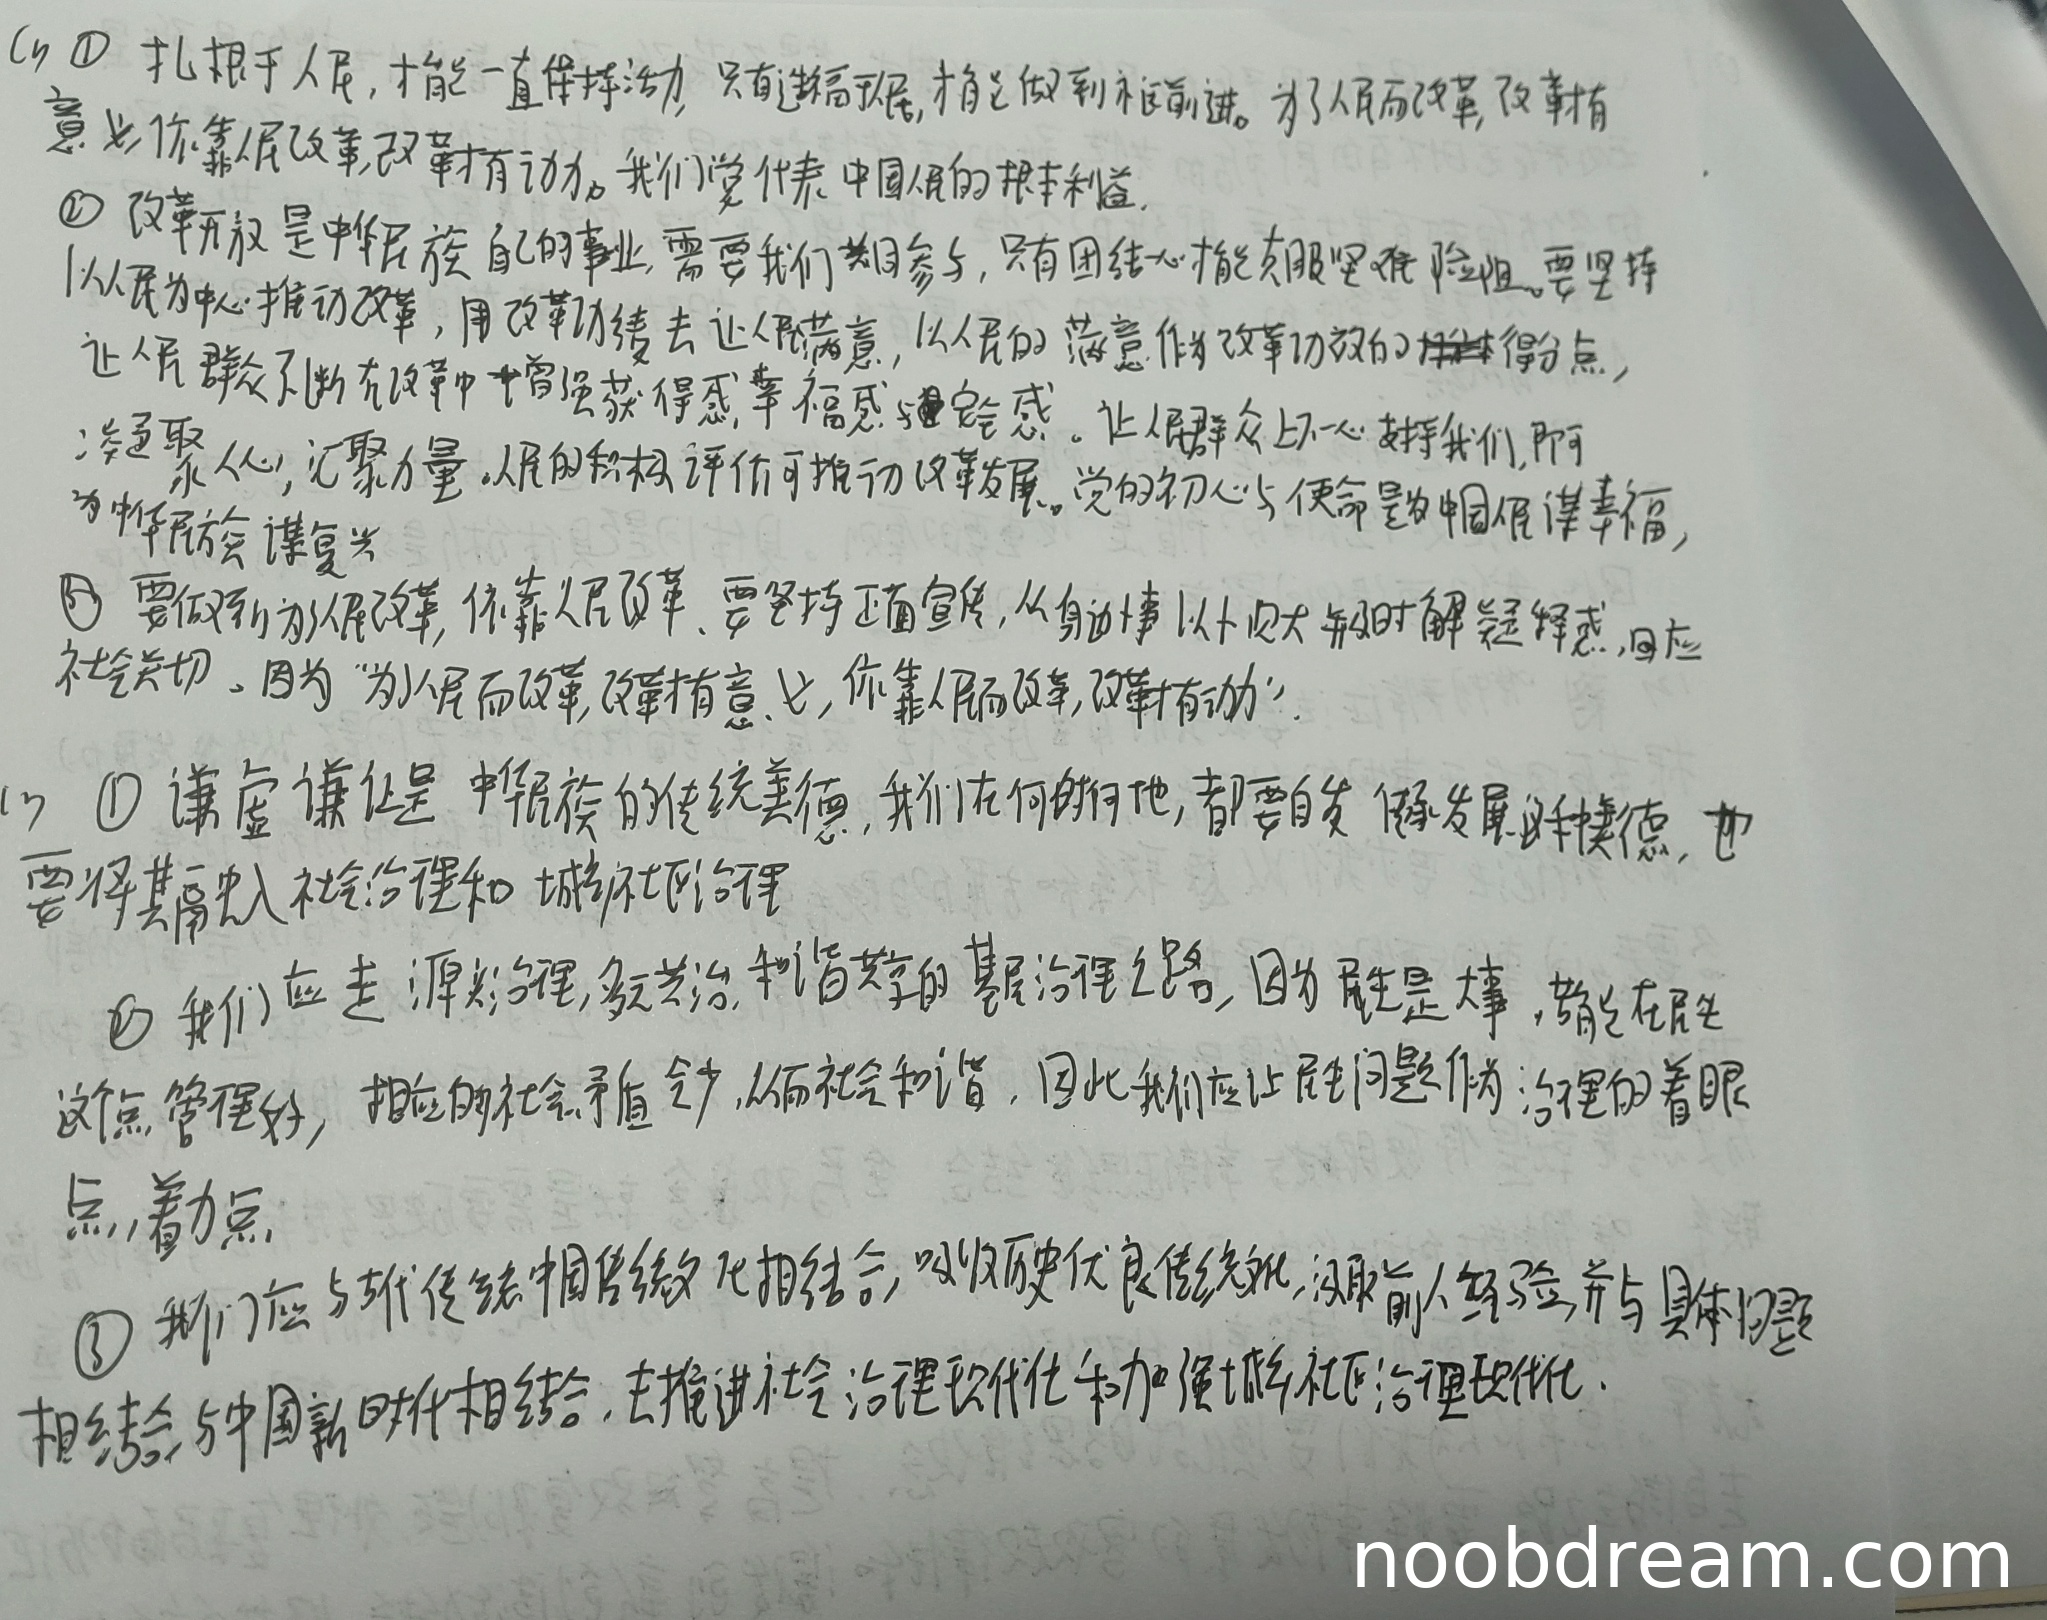 (1) ① 扎根于人民,才能一直保持活力,只有造福于人民,才能做到永远前进。为了人民而改革,改革才有
意义,依靠人民改革,改革才有动力。我们党代表中国人民的根本利益.
② 改革开放是中华民族自己的事业,需要我们共同参与,只有团结一心才能克服坚难险阻。要坚持
以人民为中心推动改革,用改革功绩去让人民满意,以人民的满意作为改革功效的得分点,
让人民群众不断在改革中增强获得感,幸福感与安全感。让人民群众上下一心支持我们,即可
凝聚人心,汇聚力量.人民的积极评价可推动改革发展。党的初心与使命是为中国人民谋幸福,
为中华民族谋复兴
③ 要做到为了人民改革,依靠人民改革、要坚持正面宣传,从身边小事以小见大并及时解疑释惑,回应
社会关切。因为“为了人民而改革,改革才有意义,依靠人民而改革,改革才有动力”.
(2) ① 谦虚谦让是中华民族的传统美德,我们在何时何地,都要自发传承发展这种美德,也
要将其融入社会治理和城乡社区治理
② 我们应走源头治理,多元共治,和谐共享的基层治理之路,因为民生是大事,若能在民生
这个点管理好,相应的社会矛盾会少,从而社会和谐.因此我们应让民生问题作为治理的着眼
点,着力点.
③ 我们应与古代传统中国传统文化相结合,吸收历史优良传统文化,汲取前人经验,并与具体问题
相结合,与中国新时代相结合,去推进社会治理现代化和加强城乡社区治理现代化.
noobdream.com